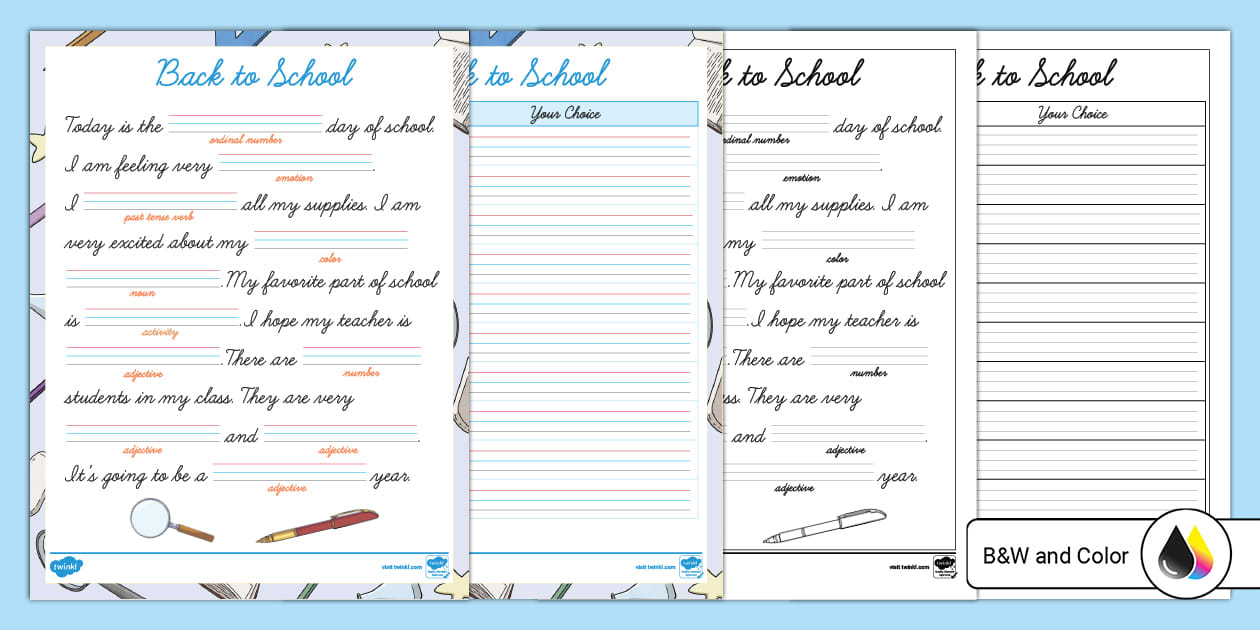 Back to School
Today is the day of school.
ordinal number
I am feeling very .
emotion
I all my supplies. I am
past tense verb
very excited about my
color
. My favorite part of school
noun
is . I hope my teacher is
activity
. There are
adjective number
students in my class. They are very
and .
adjective adjective
It's going to be a year.
adjective
twinkl
visit twinkl.com
twinkl
k to School
Your Choice
visit twinkl.com
twinkl
k to School
day of school.
rdinal number
.
emotion
all my supplies. I am
my
color
. My favorite part of school
. I hope my teacher is
. There are
number
ss. They are very
and .
adjective
year.
adjective
visit twinkl.com
twinkl
k to School
Your Choice
B&W and Color